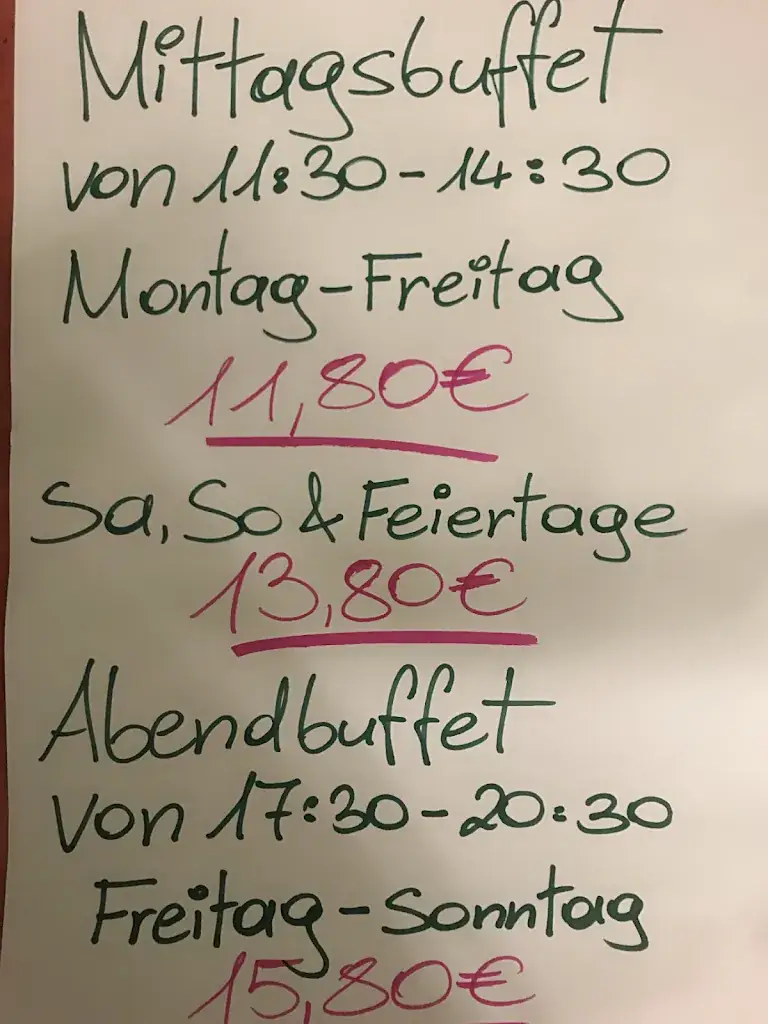 Mittagsbuffet
von 11:30-14:30
Montag-Freitag
11,80€
Sa, So & Feiertage
13,80€
Abendbuffet
von 17:30-20:30
Freitag-Sonntag
15,80€